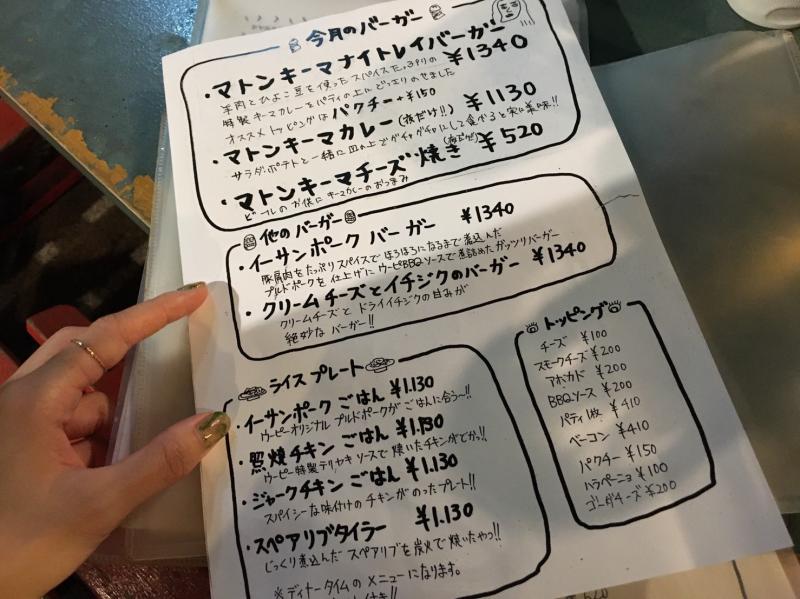 今月のバーガー
・マトンキーマナイトレイバーガー ¥1340
羊肉とひよこ豆を使ったスパイスたっぷりの
特製キーマカレーをパティの上にどっさりのせました
オススメトッピングはパクチー+¥150
・マトンキーマカレー(夜だけ!!) ¥1130
サラダ・ポテトと一緒に皿の上でグチャグチャにして食べると実に美味!!
・マトンキーマチーズ焼き(夜だけ) ¥520
ビールのお供にキーマカレーのおつまみ
他のバーガー
・イーサンポークバーガー ¥1340
豚肩肉をたっぷりスパイスでほろほろになるまで煮込んだ
プルドポークを仕上げにウーピBBQソースで煮詰めたガッツリバーガー
・クリームチーズとイチジクのバーガー ¥1340
クリームチーズとドライイチジクの甘みが
絶妙なバーガー!!
ライスプレート
・イーサンポークごはん ¥1.130
ウーピーオリジナルプルドポークがごはんに合う〜!!
・照焼チキンごはん ¥1.130
ウーピー特製テリヤキソースで焼いたチキンがでかっ!!
・ジャークチキンごはん ¥1.130
スパイシーな味付けのチキンがのったプレート!!
・スペアリブタイラー ¥1.130
じっくり煮込んだスペアリブを炭火で焼いたやつ!!
※ディナータイムのメニューになります。
トッピング
チーズ ¥100
スモークチーズ ¥200
アボカド ¥200
BBQソース ¥200
パティ1枚 ¥410
ベーコン ¥410
パクチー ¥150
ハラペーニョ ¥100
ゴーダチーズ ¥200
¥520